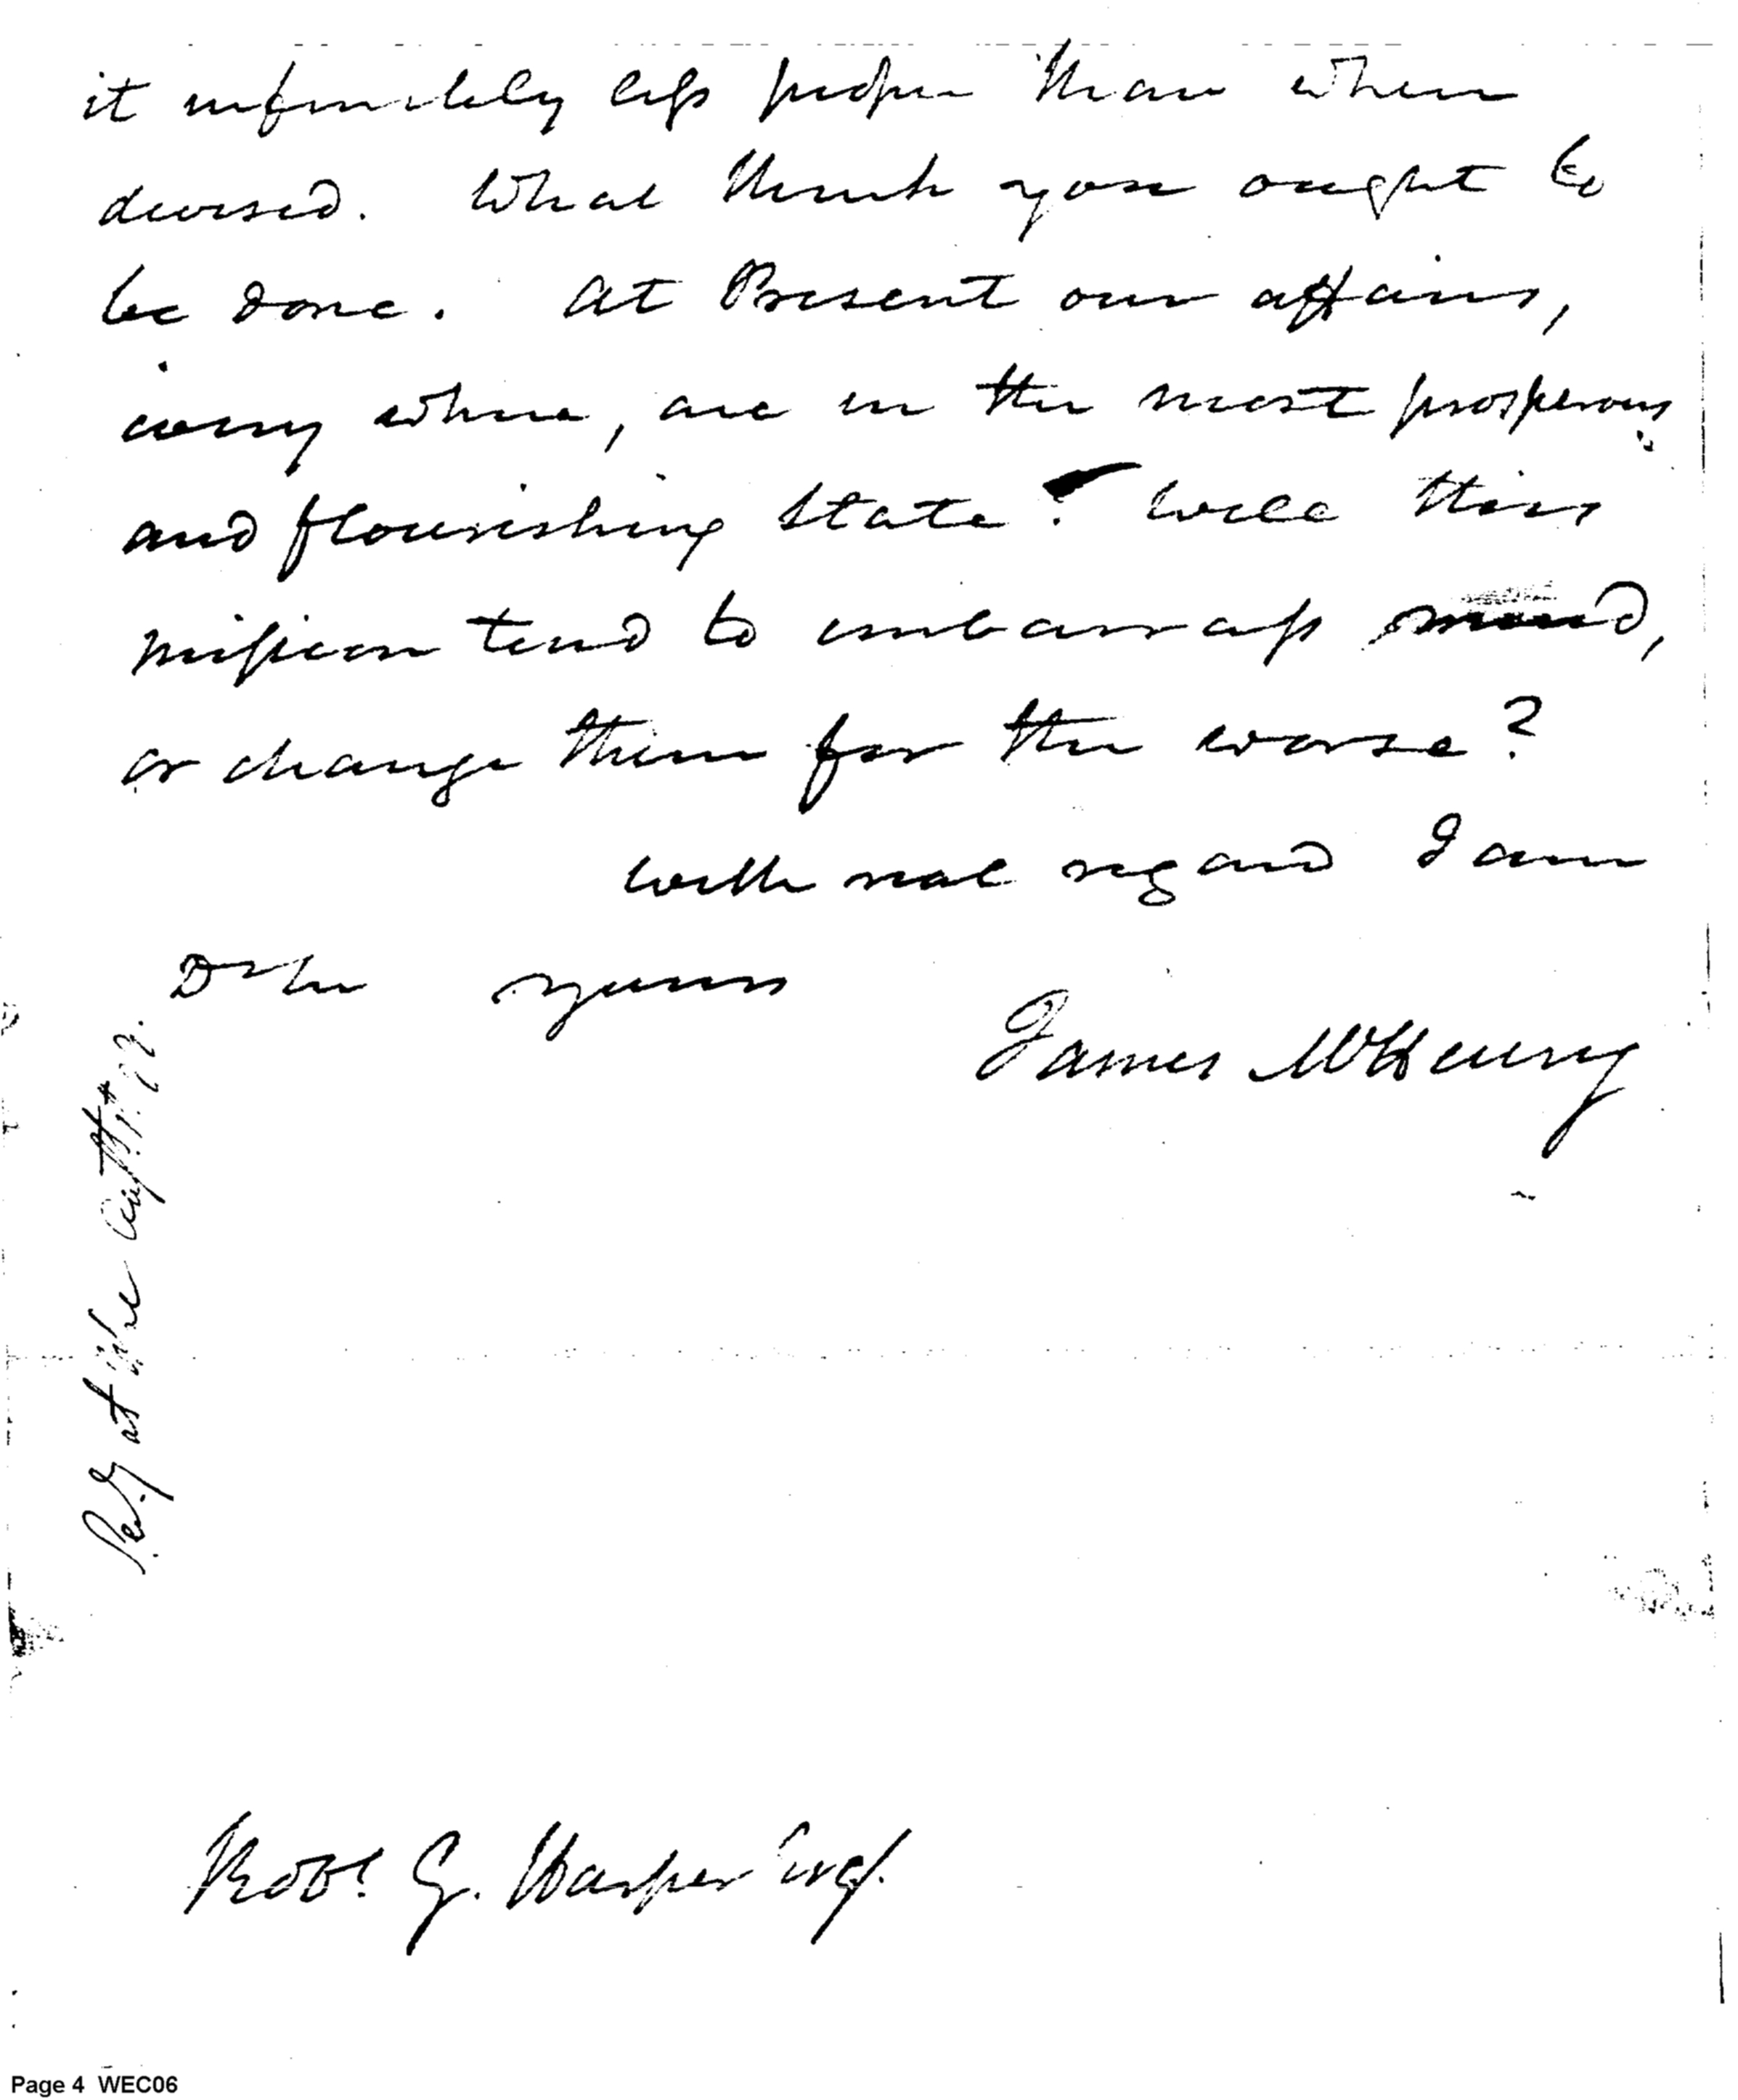 it infinitely less proper than when
devised. What think you ought to
be done. At Present our affairs,
every where, are in the most prosperous
and flourishing state? Will this
mission tend to embarrass
or change them for the worse?
With real regard I am
Dr Sir yours
James McHenry
at the
Robt. G. Harper Esqr.
Page 4 WEC06